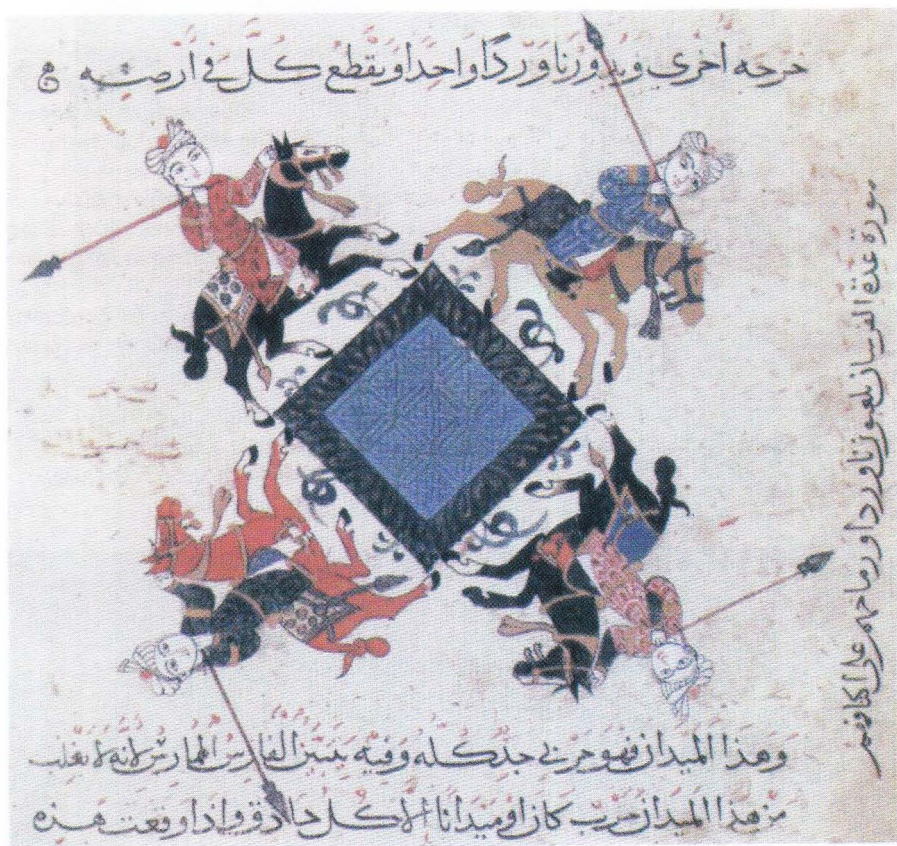 خرجه أخرى ويدور ناوردًا واحدا ويقطع كل في ارضه
صورة عدة الفرسان يلعبون ناوردا ورماحهم على اكتافهم
وهذا الميدان فهو حربي جد كله وفيه يتبين الفارس الممارس لانه لا يغلب
من هذا الميدان حرب كان او ميدانا الا كل حاذق واذا وقعت هذه